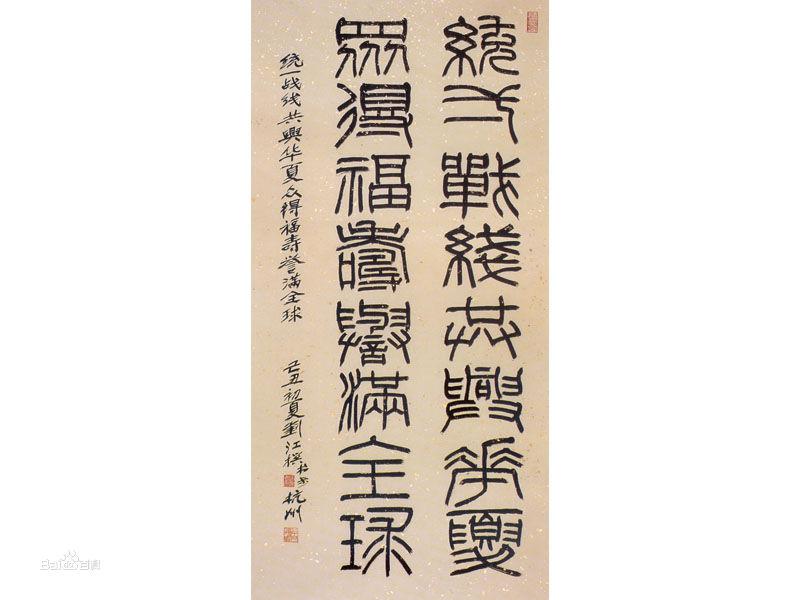 統一戰綫共興華夏
眾得福壽譽滿全球
统一战线共興华夏众得福寿誉满全球
己丑初夏劉江撰杭州
Baidu百科